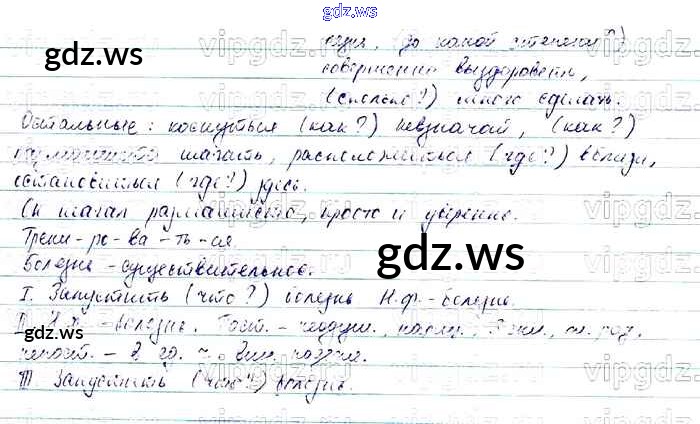 gdz.ws
(до какой степени?)
gdz.ws
совершенно выздороветь,
(сколько?) много сделать.
Остальные: коснуться (как?) невзначай, (как?)
размашисто шагать, расположиться (где?) вблизи,
остановиться (где?) здесь.
Он шагал размашисто, просто и уверенно.
Трени-ро-ва-ть-ся.
gdz.ws
Болезнь - существительное.
I. Запустить (что?) болезнь Н.ф.-болезнь.
gdz.ws
II. Н.ф. - болезнь. Пост. - неодуш., нариц., 3 скл., ж. род,
непост. - в ед. ч., вин. падеже.
gdz.ws
III. Запустить (что?) болезнь.